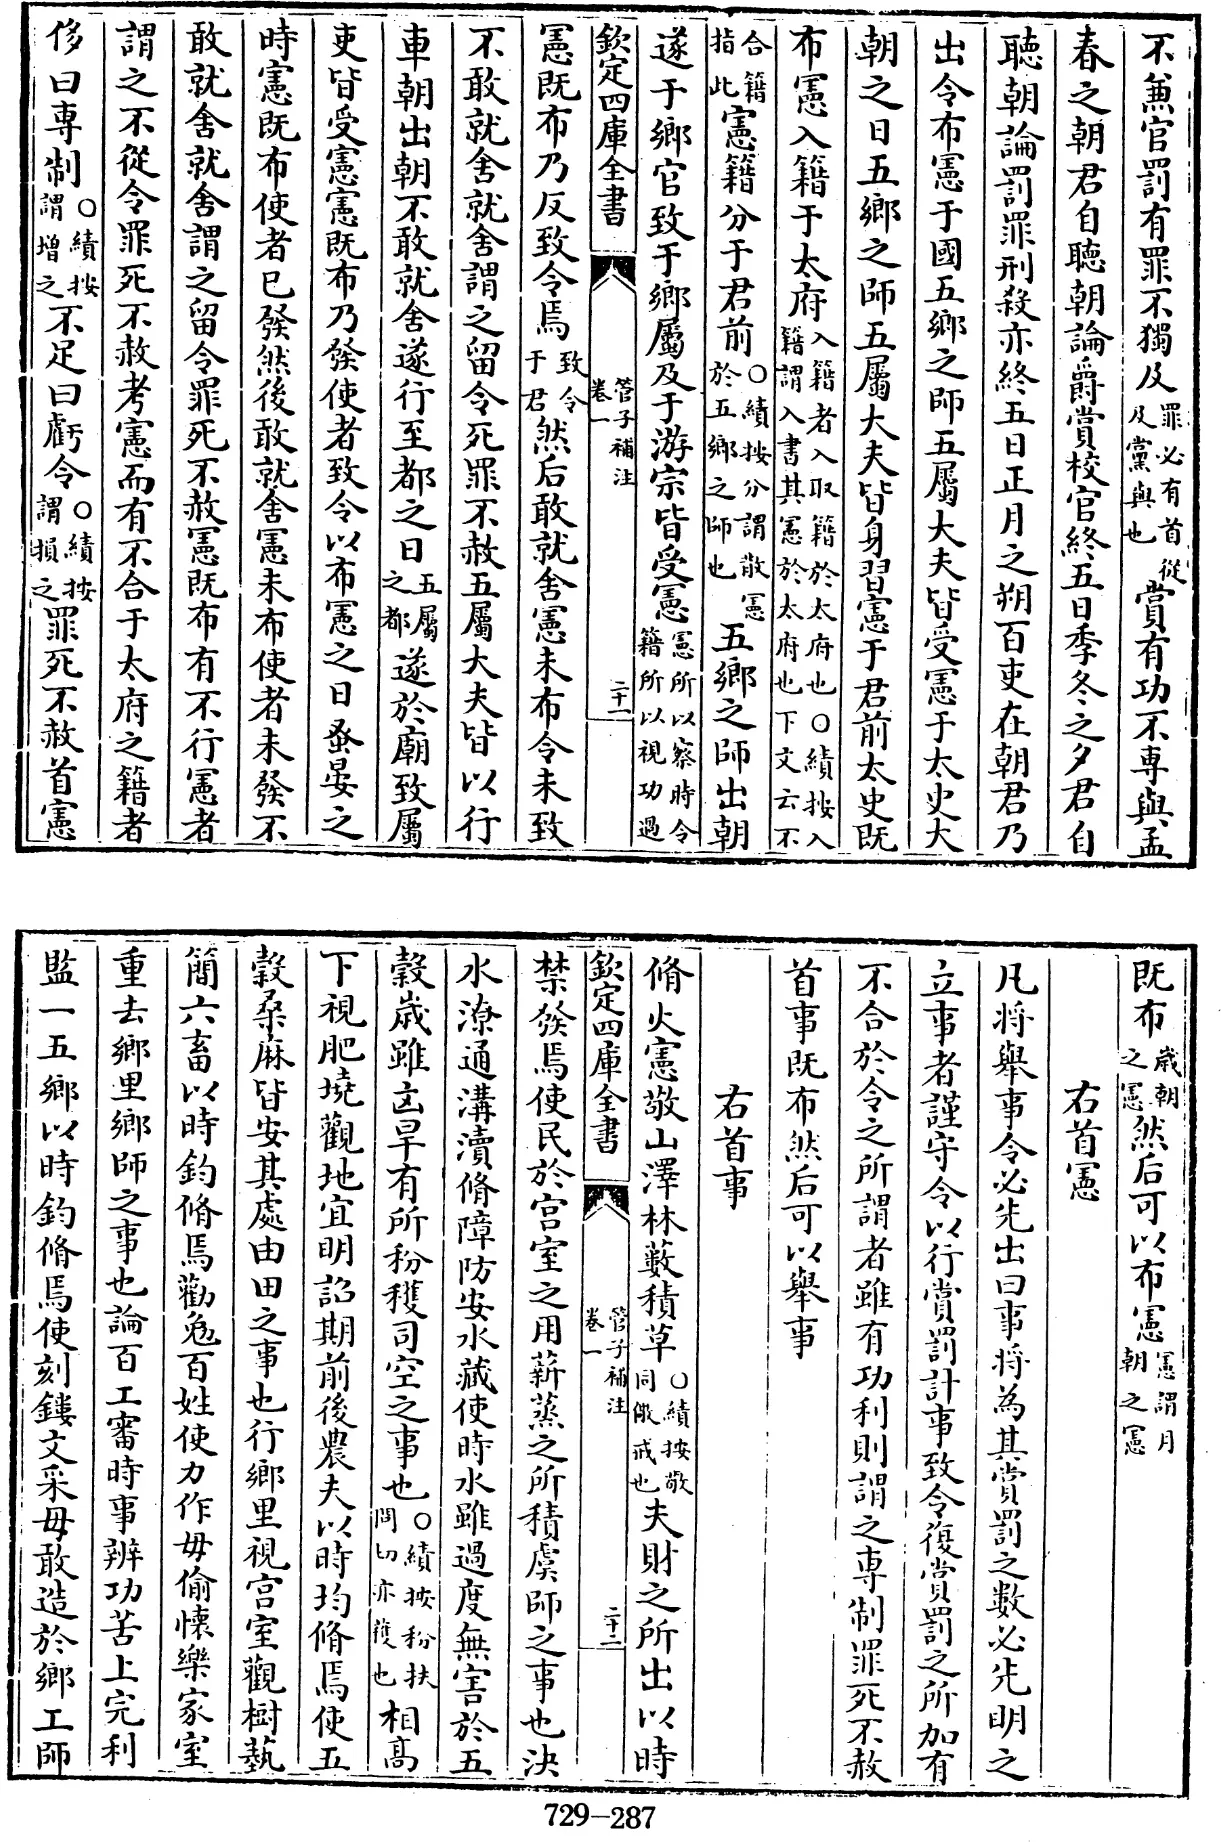 不兼官罰有罪不獨及罪必有首從及黨與也賞有功不專與孟
春之朝君自聽朝論爵賞校官終五日季冬之夕君自
聽朝論罰罪刑殺亦終五日正月之朔百吏在朝君乃
出令布憲于國五鄉之師五屬大夫皆受憲于太史大
朝之日五鄉之師五屬大夫皆身習憲于君前太史既
布憲入籍于太府入籍者入取籍於太府也○績按入籍謂入書其憲於太府也下文云不
合籍指此憲籍分于君前○績按分謂散憲於五鄉之師也五鄉之師出朝
遂于鄉官致于鄉屬及于游宗皆受憲憲所以察時令籍所以視功過
欽定四庫全書 管子補注卷一 二十一
憲既布乃反致令焉致令于君然后敢就舍憲未布令未致
不敢就舍就舍謂之留令死罪不赦五屬大夫皆以行
車朝出朝不敢就舍遂行至都之日五屬之都遂於廟致屬
吏皆受憲憲既布乃發使者致令以布憲之日蚤晏之
時憲既布使者已發然後敢就舍憲未布使者未發不
敢就舍就舍謂之留令罪死不赦憲既布有不行憲者
謂之不從令罪死不赦考憲而有不合于太府之籍者
侈曰專制○績按謂增之不足曰虧令○績按謂損之罪死不赦首憲
既布歲朝之憲然后可以布憲憲謂月朝之憲
右首憲
凡將舉事令必先出曰事將為其賞罰之數必先明之
立事者謹守令以行賞罰計事致令復賞罰之所加有
不合於令之所謂者雖有功利則謂之專制罪死不赦
首事既布然后可以舉事
右首事
脩火憲敬山澤林藪積草○績按敬同儆戒也夫財之所出以時
欽定四庫全書 管子補注卷一 二十二
禁發焉使民於宫室之用薪蒸之所積虞師之事也決
水潦通溝瀆脩障防安水藏使時水雖過度無害於五
穀歲雖凶旱有所秎穫司空之事也○績按秎扶問切亦穫也相高
下視肥墝觀地宜明詔期前後農夫以時均脩焉使五
穀桑麻皆安其處由田之事也行鄉里視宫室觀樹藝
簡六畜以時鈞脩焉勸勉百姓使力作毋偷懷樂家室
重去鄉里鄉師之事也論百工審時事辨功苦上完利
監一五鄉以時鈞脩焉使刻鏤文采毋敢造於鄉工師
729-287